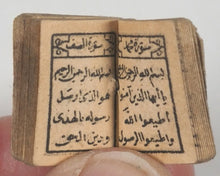 سورة محمد
بسم الله الرحمن الرحيم
يا ايها الذين آمنوا
اطيعوا الله
واطيعوا الرسول
سورة الصف
بسم الله الرحمن الرحيم
هو الذى ارسل
رسوله بالهدى
ودين الحق